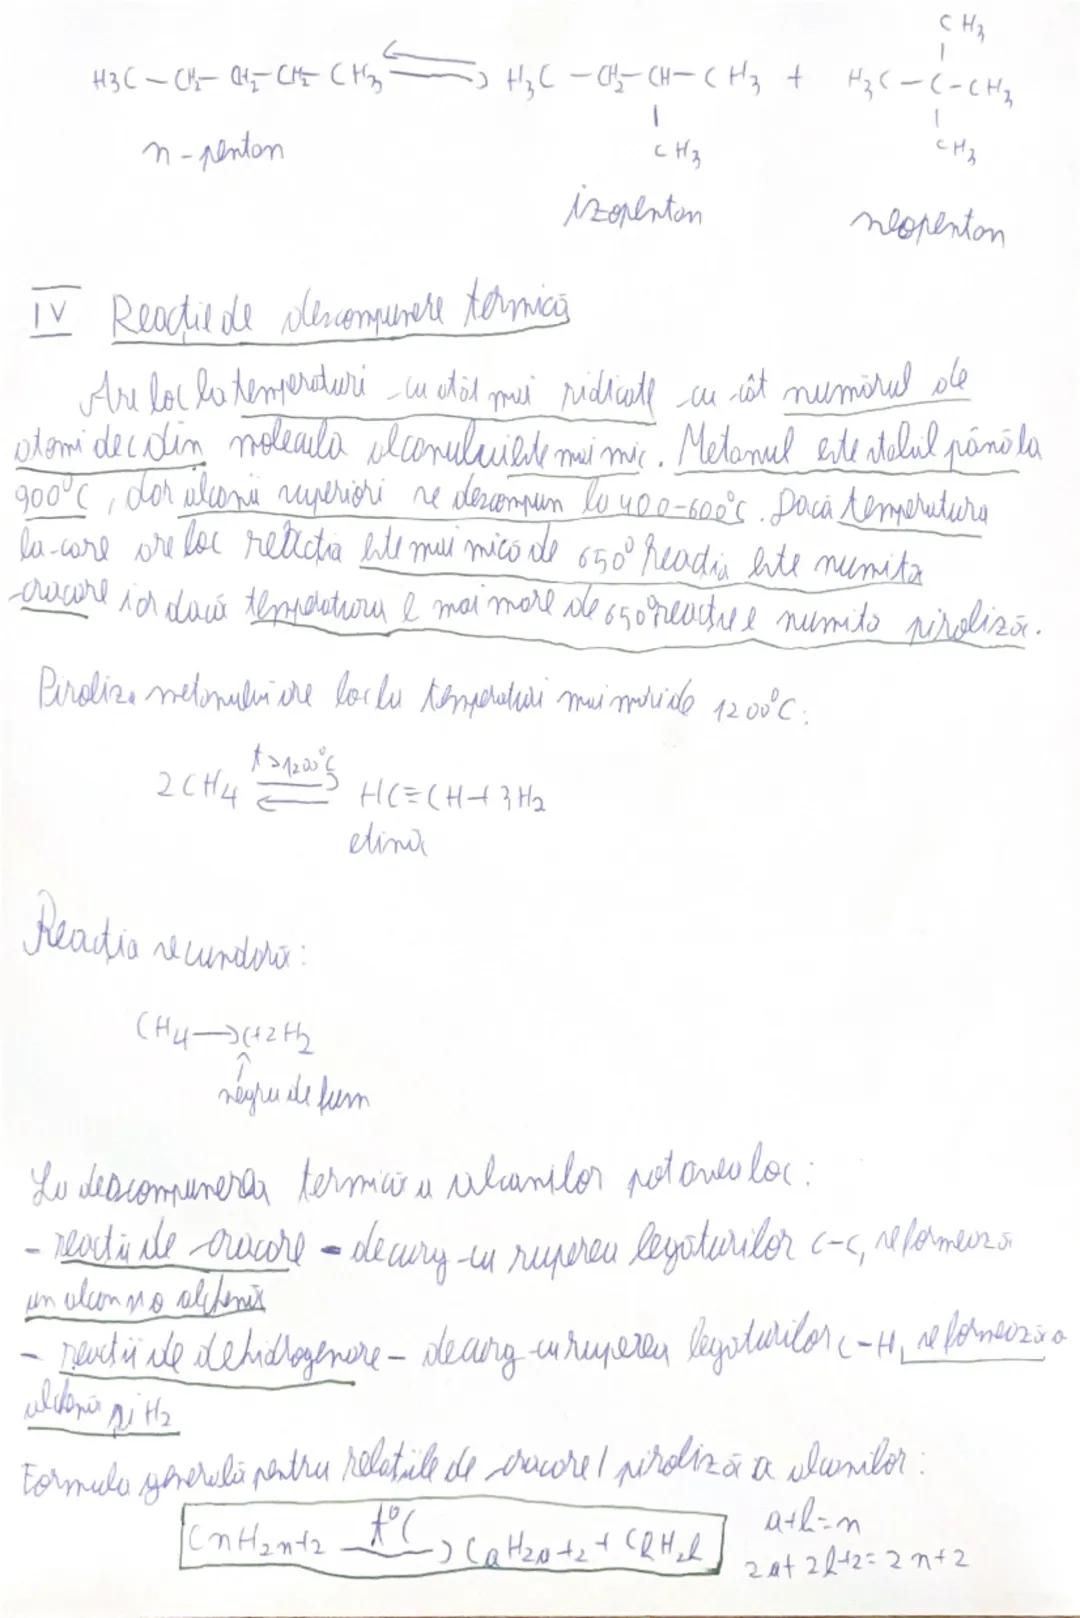 CH3
|
H3C - CH2 - CH2 - CH2 - CH3 ⇄ H3C - CH2 - CH - CH3 + H3C - C - CH3
| |
n-pentan CH3 CH3
izopentan neopentan
IV Reacție de descompunere termică
Are loc la temperaturi cu atât mai ridicate cu cât numărul de
atomi de C din molecula alcanului este mai mic. Metanul este stabil până la
900°C, dar alcanii superiori se descompun la 400-600°C. Dacă temperatura
la care are loc reacția este mai mică de 650° Reacția este numita
cracare iar dacă temperatura e mai mare de 650° reacție e numita piroliză.
Piroliza metanului are loc la temperaturi mai mari de 1200°C:
2CH4 ⇄ t>1200°C HC≡CH + 3H2
etină
Reacția secundară:
CH4 → C+2H2
↑
negru de fum
La descompunerea termică a alcanilor pot avea loc:
- reacții de cracare - decurg cu ruperea legăturilor C-C, se formează
un alcan și o alchenă
- reacții de dehidrogenare - decurg cu ruperea legăturilor C-H, se formează o
alchenă și H2
Formula generală pentru relațiile de cracare / piroliză a alcanilor:
CnH2n+2 t°C → CaH2a+2 + CbH2b a+b=n
2a+2b+2=2n+2